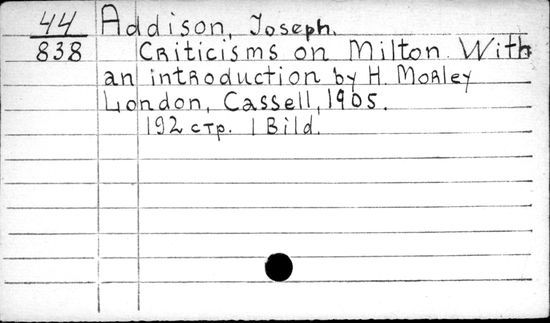 44 Addison, Joseph.
838 Criticisms on Milton. With
an introduction by H. Morley
London, Cassell, 1905.
192 стр. 1 Bild.